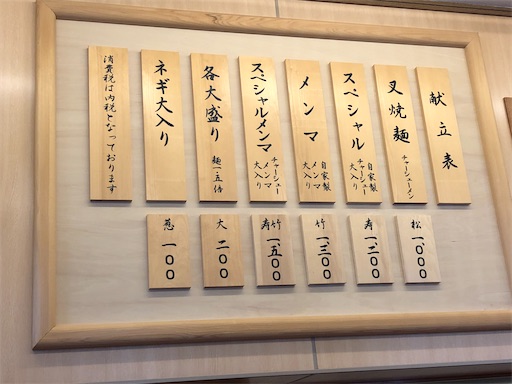 献立表
叉焼麺 チャーシューメン
スペシャル 自家製
チャーシュー
大入り
メンマ 自家製
メンマ
大入り
スペシャルメンマ チャーシュー
メンマ
大入り
各大盛り 麺一・五倍
ネギ大入り
消費税は内税となっております
松 一、〇〇〇
寿 一、二〇〇
竹 一、三〇〇
寿竹 一、五〇〇
大 二〇〇
葱 一〇〇